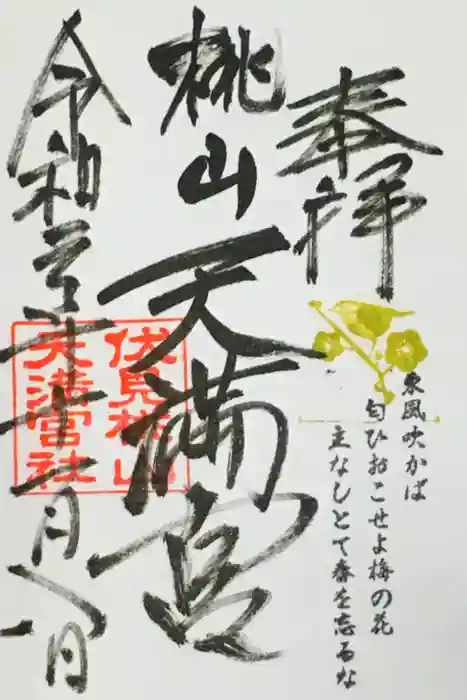 奉拝
東風吹かば
匂ひおこせよ梅の花
主なしとて春を忘るな
桃山天満宮
伏見桃山
天満宮社
令和年十一月八日